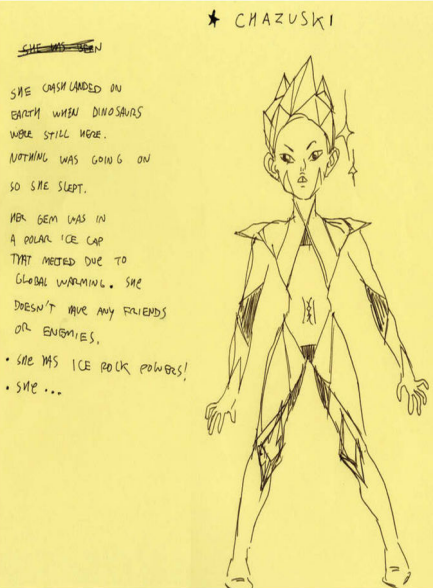 ★ CHAZUSKI
SHE HAS BEEN
SHE CRASH LANDED ON
EARTH WHEN DINOSAURS
WERE STILL HERE.
NOTHING WAS GOING ON
SO SHE SLEPT.
HER GEM WAS IN
A POLAR ICE CAP
THAT MELTED DUE TO
GLOBAL WARMING. SHE
DOESN'T HAVE ANY FRIENDS
OR ENEMIES.
• SHE HAS ICE ROCK POWERS!
• SHE ...